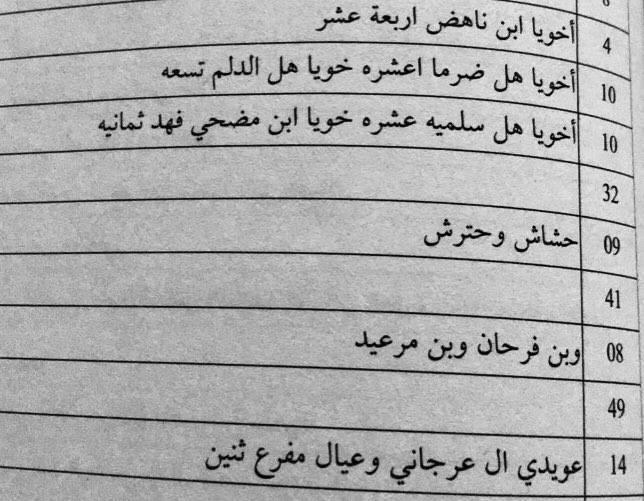 أخويا ابن ناهض اربعة عشر 4
أخويا هل ضرما اعشره خويا هل الدلم تسعه 10
أخويا هل سلميه عشره خويا ابن مضحي فهد ثمانيه 10
32
حشاش وحترش 09
41
وبن فرحان وبن مرعيد 08
49
عويدي ال عرجاني وعيال مفرع ثنين 14